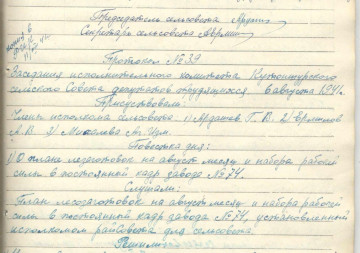 Председатель сельсовета
Секретарь сельсовета
Протокол № 39
Заседания исполнительного комитета
сельского Совета депутатов трудящихся 6 августа 194
Присутствовали:
Члены исполкома сельсовета 1/ Ардашев Г. В. 2/ Ермолов
А. В. 3/
Повестка дня:
1/ О плане лесозаготовок на август месяц и набора рабочей
силы в постоянный кадр завода № 74.
Слушали:
План лесозаготовок на август месяц и набора рабочей
силы в постоянный кадр завода № 74, установленный
исполкомом райсовета для сельсовета.
Решили